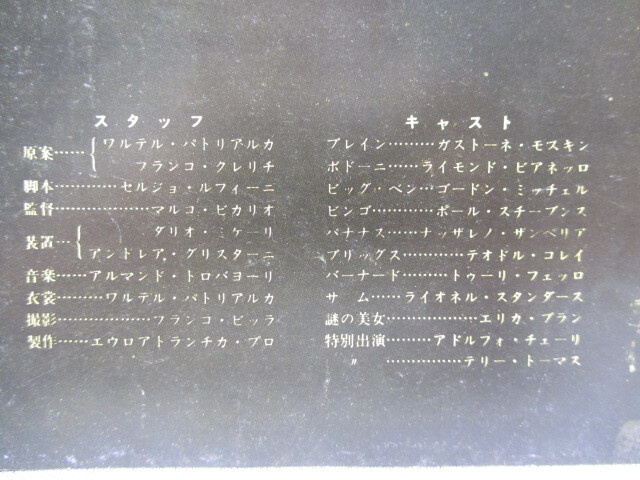 スタッフ
原案……{ワルテル・パトリアルカ
フランコ・クレリチ
脚本…………セルジョ・ルフィーニ
監督……………マルコ・ビカリオ
装置…{ダリオ・ミケーリ
アンドレア・グリスターニ
音楽………アルマンド・トロバヨーリ
衣裳………ワルテル・パトリアルカ
撮影………………フランコ・ビッラ
製作………エウロアトランチカ・プロ
キャスト
ブレイン………ガストーネ・モスキン
ボドーニ……ライモンド・ビアネッロ
ビッグ・ベン…ゴードン・ミッチェル
ビンゴ…………ポール・スチーブンス
バナナス……ナッザレノ・ザンペリア
ブリッグス…………テオドル・コレイ
バーナード………トゥーリ・フェッロ
サム……ライオネル・スタンダース
謎の美女………………エリカ・ブラン
特別出演…………アドルフォ・チェーリ
〃………………テリー・トーマス